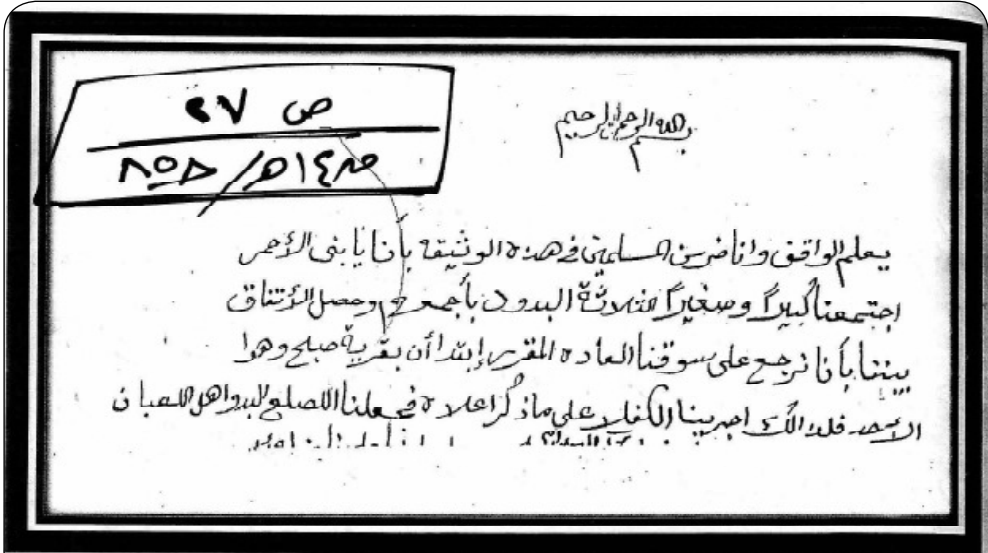 ص ٢٧
١٤هـ/ ٨٥٨
بسم الله الرحمن الرحيم
يعلم الواقف والناضر من المسلمين في هذه الوثيقة بأننا يا بني الأحمر
اجتمعنا كبيراً وصغيراً ثلاثة البدود بأجمعهم وحصل الأتفاق
بيننا بأنا نرجع على سوقنا العاده المقرر إبتدا أن بقرية صبلح وهوا
الأحد فلذالك اجرينا الكفلا على ماذكر اعلاه فجعلنا